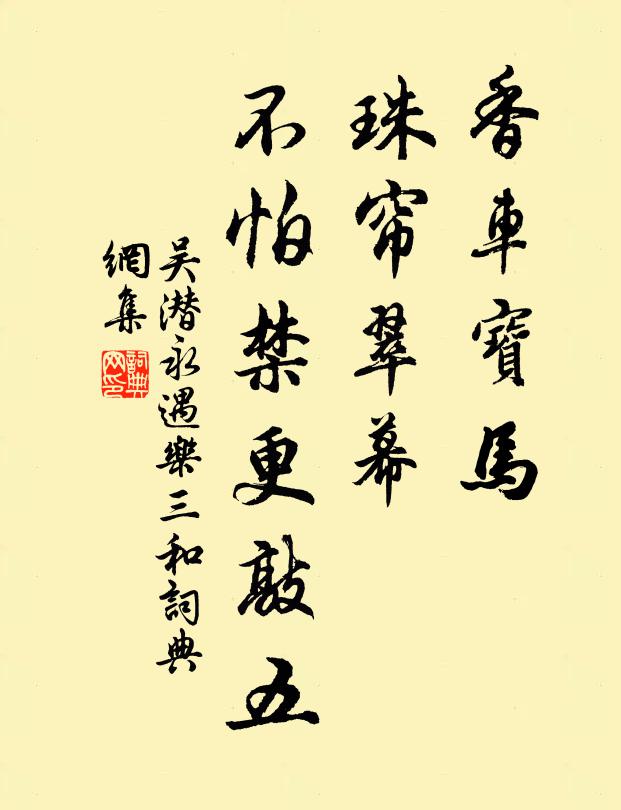 香車寶馬
珠帘翠幕
不怕禁更敲五
吴潜永遇樂三和詞典
網集
詞典
网印